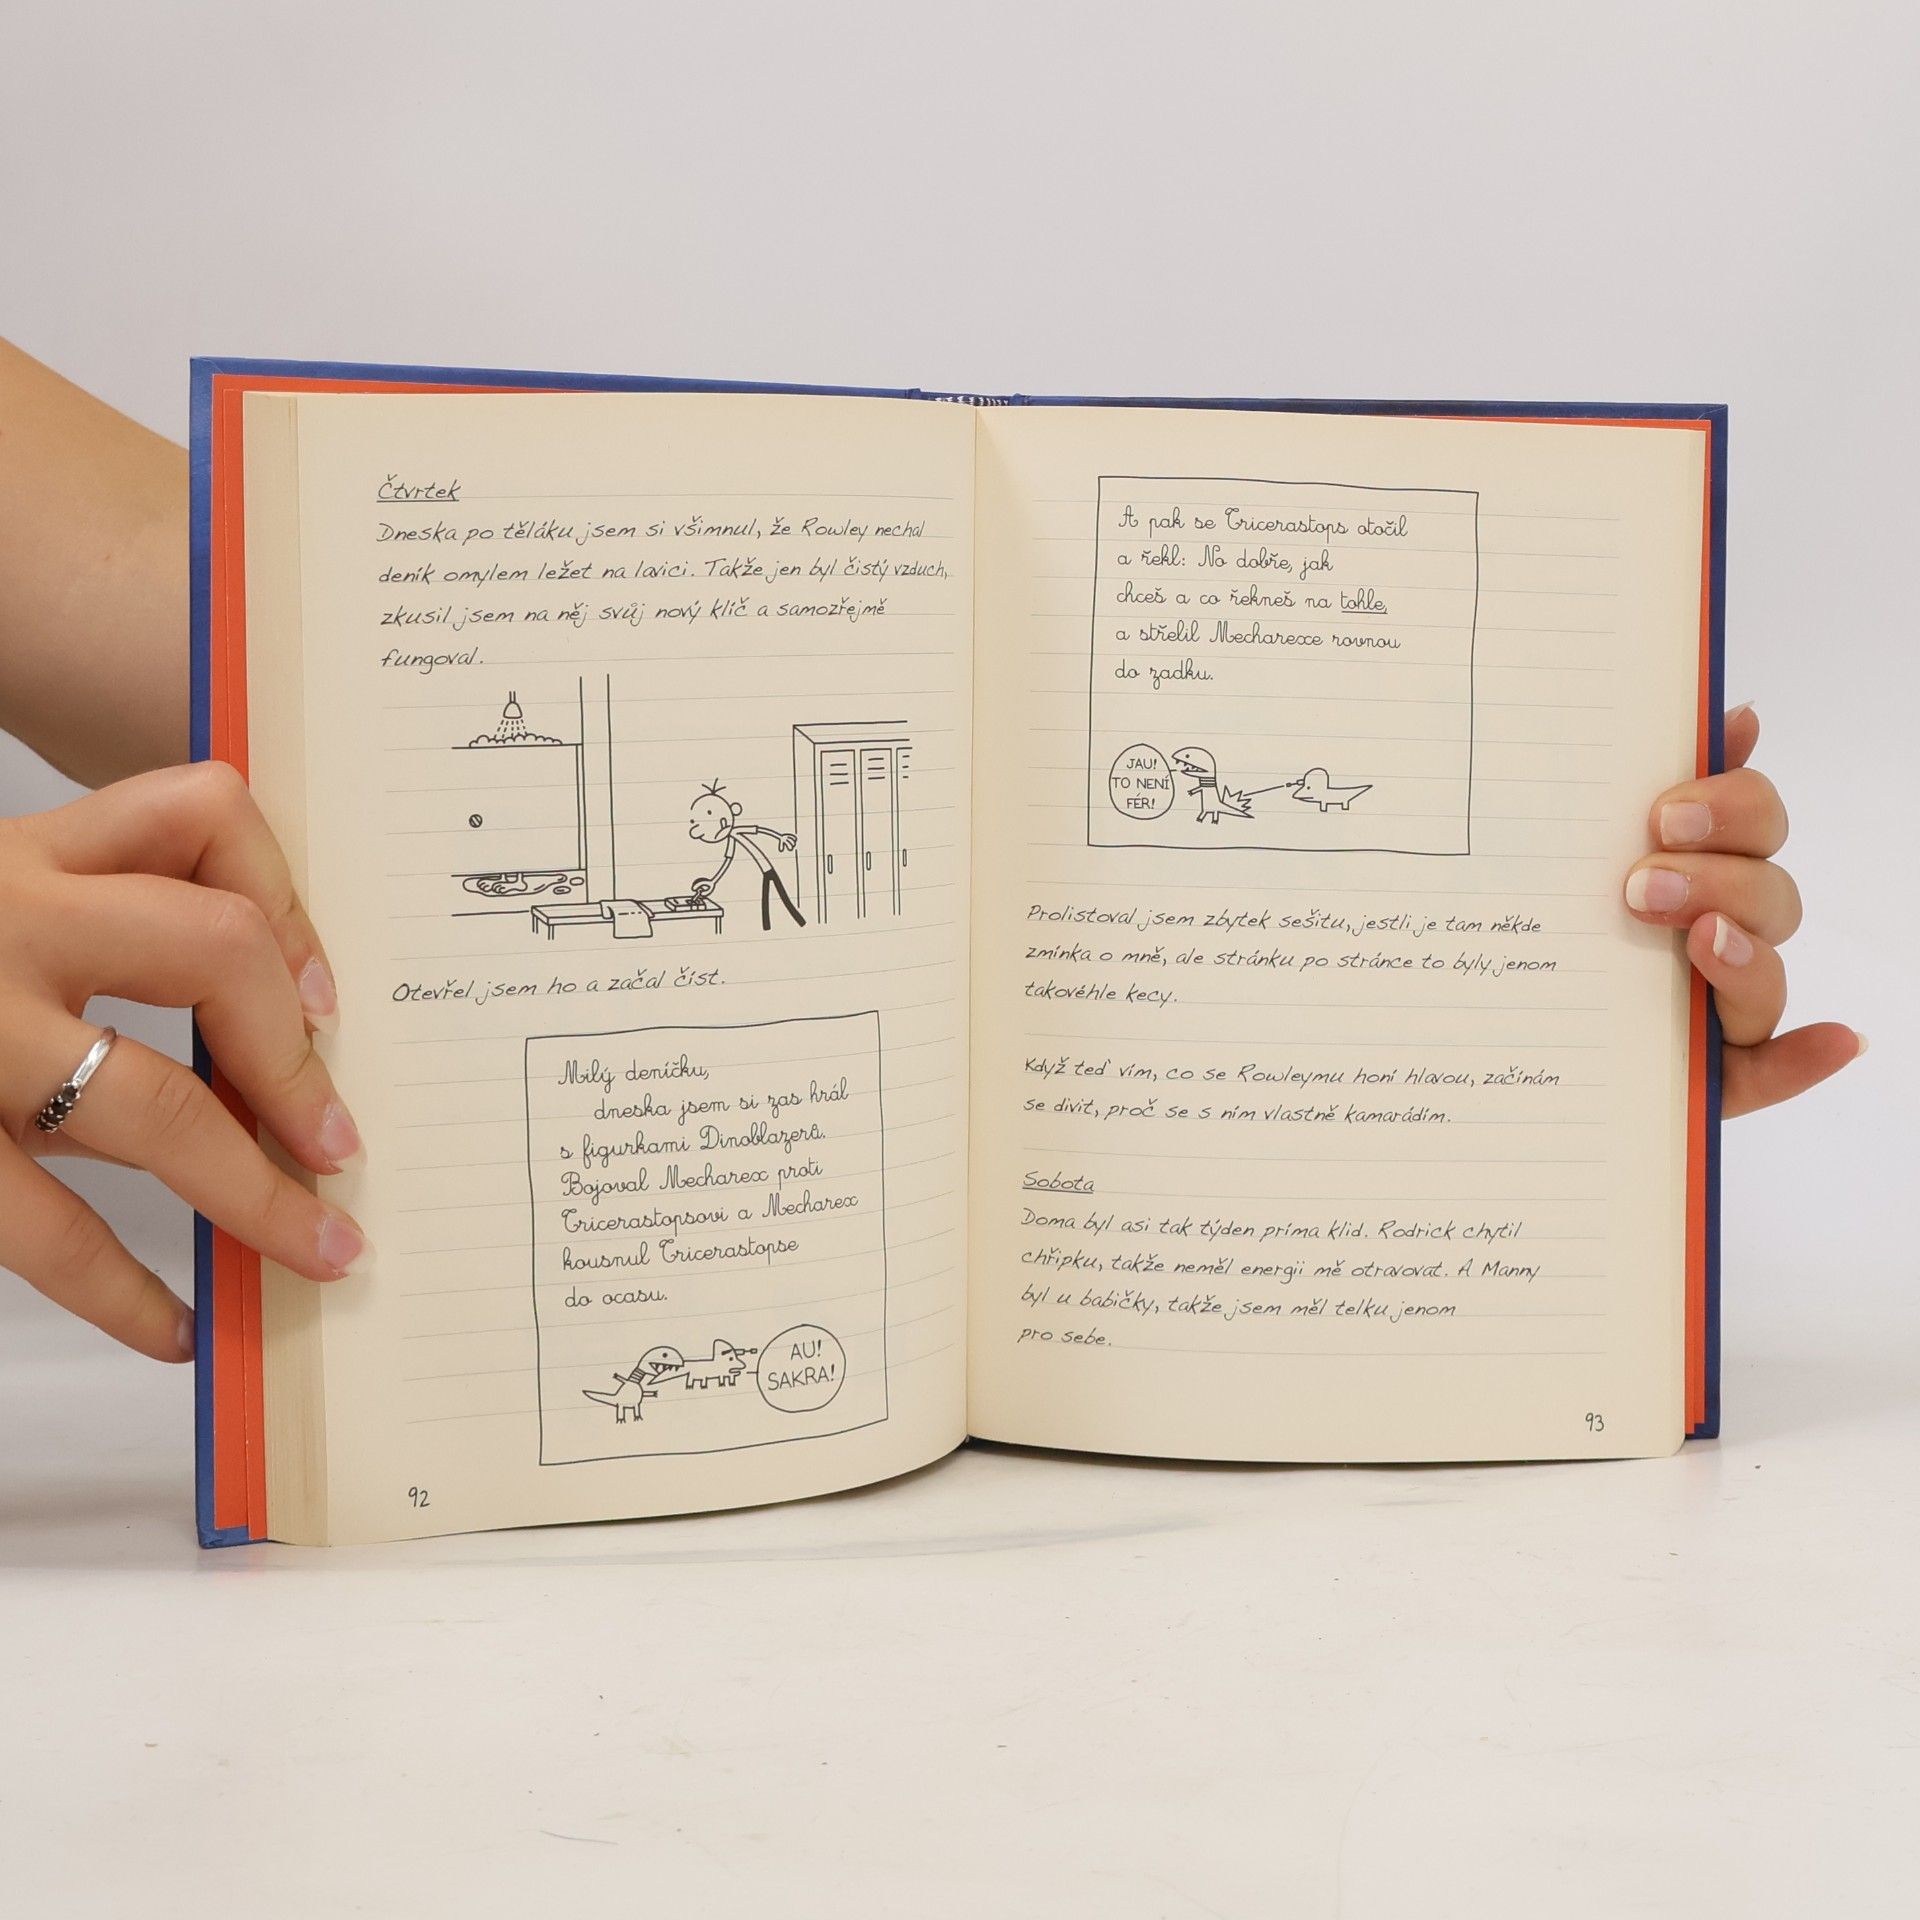 Čtvrtek
Dneska po těláku jsem si všimnul, že Rowley nechal
deník omylem ležet na lavici. Takže jen byl čistý vzduch,
zkusil jsem na něj svůj nový klíč a samozřejmě
fungoval.
Otevřel jsem ho a začal číst.
Milý deníčku,
dneska jsem si zas hrál
s figurkami Dinoblazerů.
Bojoval Mecharex proti
Tricerastopsovi a Mecharex
kousnul Tricerastopse
do ocasu.
AU!
SAKRA!
92
A pak se Tricerastops otočil
a řekl: No dobře, jak
chceš a co řekneš na tohle,
a střelil Mecharexe rovnou
do zadku.
JAU!
TO NENÍ
FÉR!
Prolistoval jsem zbytek sešitu, jestli je tam někde
zmínka o mně, ale stránku po stránce to byly jenom
takovéhle kecy.
Když teď vím, co se Rowleymu honí hlavou, začínám
se divit, proč se s ním vlastně kamarádím.
Sobota
Doma byl asi tak týden príma klid. Rodrick chytil
chřipku, takže neměl energii mě otravovat. A Manny
byl u babičky, takže jsem měl telku jenom
pro sebe.
93